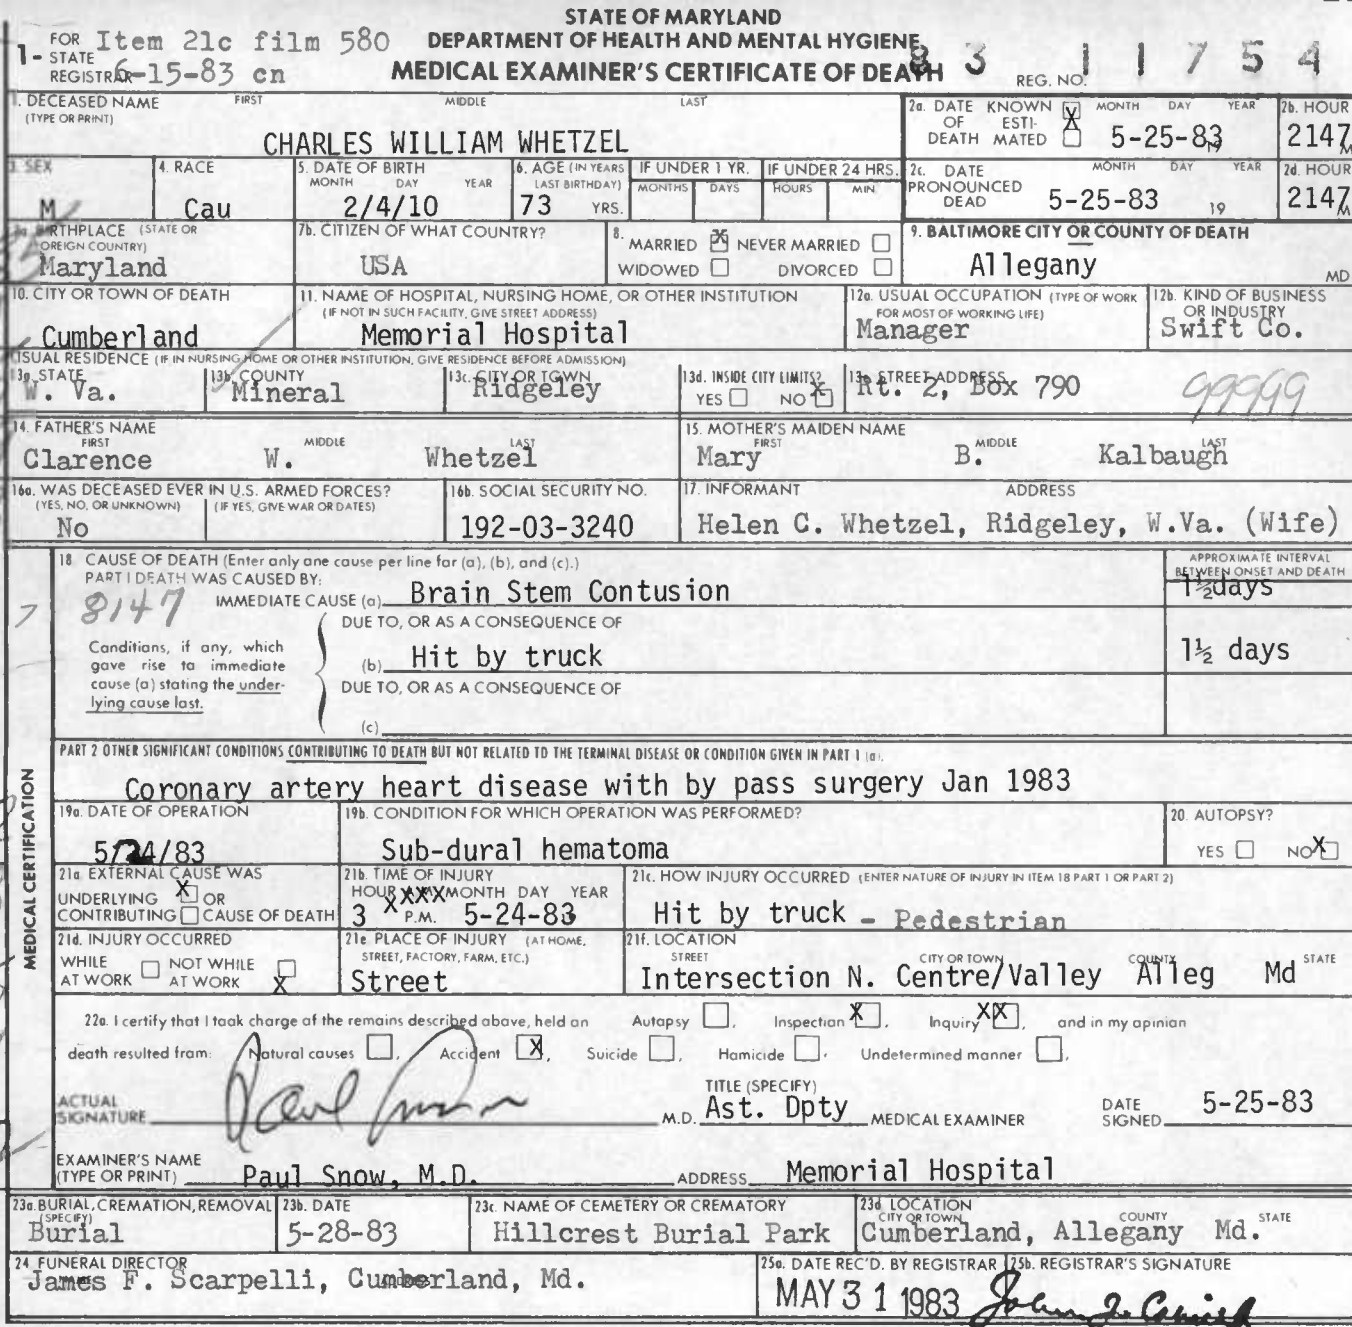 STATE OF MARYLAND
DEPARTMENT OF HEALTH AND MENTAL HYGIENE
MEDICAL EXAMINER'S CERTIFICATE OF DEATH
1- FOR STATE REGISTRAR Item 21c film 580
6-15-83 cn
REG. NO. 83 11754
1. DECEASED NAME (TYPE OR PRINT) FIRST MIDDLE LAST
CHARLES WILLIAM WHETZEL
2a. DATE OF DEATH KNOWN X ESTIMATED MONTH DAY YEAR
5-25-83 19
2b. HOUR
2147 M
3. SEX
M
4. RACE
Cau
5. DATE OF BIRTH MONTH DAY YEAR
2/4/10
6. AGE (IN YEARS LAST BIRTHDAY)
73 YRS.
IF UNDER 1 YR. MONTHS DAYS
IF UNDER 24 HRS. HOURS MIN.
2c. DATE PRONOUNCED DEAD MONTH DAY YEAR
5-25-83 19
2d. HOUR
2147 M
7a. BIRTHPLACE (STATE OR FOREIGN COUNTRY)
Maryland
7b. CITIZEN OF WHAT COUNTRY?
USA
8. MARRIED X NEVER MARRIED
WIDOWED DIVORCED
9. BALTIMORE CITY OR COUNTY OF DEATH
Allegany MD
10. CITY OR TOWN OF DEATH
Cumberland
11. NAME OF HOSPITAL, NURSING HOME, OR OTHER INSTITUTION
(IF NOT IN SUCH FACILITY, GIVE STREET ADDRESS)
Memorial Hospital
12a. USUAL OCCUPATION (TYPE OF WORK FOR MOST OF WORKING LIFE)
Manager
12b. KIND OF BUSINESS OR INDUSTRY
Swift Co.
USUAL RESIDENCE (IF IN NURSING HOME OR OTHER INSTITUTION, GIVE RESIDENCE BEFORE ADMISSION)
13a. STATE
W. Va.
13b. COUNTY
Mineral
13c. CITY OR TOWN
Ridgeley
13d. INSIDE CITY LIMITS?
YES NO X
13e. STREET ADDRESS
Rt. 2, Box 790 99999
14. FATHER'S NAME FIRST MIDDLE LAST
Clarence W. Whetzel
15. MOTHER'S MAIDEN NAME FIRST MIDDLE LAST
Mary B. Kalbaugh
16a. WAS DECEASED EVER IN U.S. ARMED FORCES?
(YES, NO, OR UNKNOWN) (IF YES, GIVE WAR OR DATES)
No
16b. SOCIAL SECURITY NO.
192-03-3240
17. INFORMANT ADDRESS
Helen C. Whetzel, Ridgeley, W.Va. (Wife)
MEDICAL CERTIFICATION
18 CAUSE OF DEATH (Enter only one cause per line for (a), (b), and (c).)
PART I DEATH WAS CAUSED BY:
APPROXIMATE INTERVAL BETWEEN ONSET AND DEATH
8147
IMMEDIATE CAUSE (a) Brain Stem Contusion 1½days
DUE TO, OR AS A CONSEQUENCE OF
Conditions, if any, which gave rise to immediate cause (a) stating the underlying cause last.
(b) Hit by truck 1½ days
DUE TO, OR AS A CONSEQUENCE OF
(c)
PART 2 OTHER SIGNIFICANT CONDITIONS CONTRIBUTING TO DEATH BUT NOT RELATED TO THE TERMINAL DISEASE OR CONDITION GIVEN IN PART 1 (a).
Coronary artery heart disease with by pass surgery Jan 1983
19a. DATE OF OPERATION
5/24/83
19b. CONDITION FOR WHICH OPERATION WAS PERFORMED?
Sub-dural hematoma
20. AUTOPSY?
YES NO X
21a EXTERNAL CAUSE WAS
UNDERLYING X OR
CONTRIBUTING CAUSE OF DEATH
21b. TIME OF INJURY
HOUR XXXX MONTH DAY YEAR
3 P.M. 5-24-83
21c. HOW INJURY OCCURRED (ENTER NATURE OF INJURY IN ITEM 18 PART 1 OR PART 2)
Hit by truck - Pedestrian
21d. INJURY OCCURRED
WHILE AT WORK NOT WHILE AT WORK X
21e PLACE OF INJURY (AT HOME, STREET, FACTORY, FARM, ETC.)
Street
21f. LOCATION
STREET CITY OR TOWN COUNTY STATE
Intersection N. Centre/Valley Alleg Md
22a. I certify that I took charge of the remains described above, held an Autopsy , Inspection X , Inquiry XX , and in my opinion
death resulted from: Natural causes , Accident X , Suicide , Homicide , Undetermined manner .
ACTUAL SIGNATURE Paul Snow M.D.
TITLE (SPECIFY)
Ast. Dpty MEDICAL EXAMINER
DATE SIGNED 5-25-83
EXAMINER'S NAME (TYPE OR PRINT) Paul Snow, M.D.
ADDRESS Memorial Hospital
23a. BURIAL, CREMATION, REMOVAL (SPECIFY)
Burial
23b. DATE
5-28-83
23c. NAME OF CEMETERY OR CREMATORY
Hillcrest Burial Park
23d. LOCATION
CITY OR TOWN COUNTY STATE
Cumberland, Allegany Md.
24. FUNERAL DIRECTOR
James F. Scarpelli, Cumberland, Md.
25a. DATE REC'D. BY REGISTRAR
MAY 31 1983
25b. REGISTRAR'S SIGNATURE